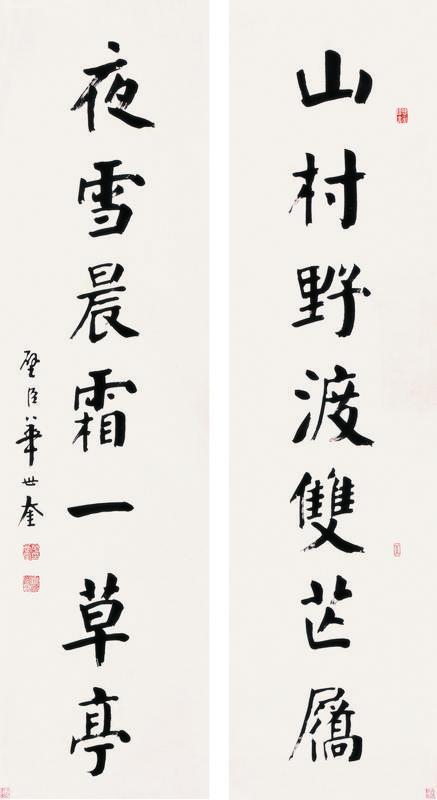 山村野渡雙芒屩
夜雪晨霜一草亭
璧臣華世奎